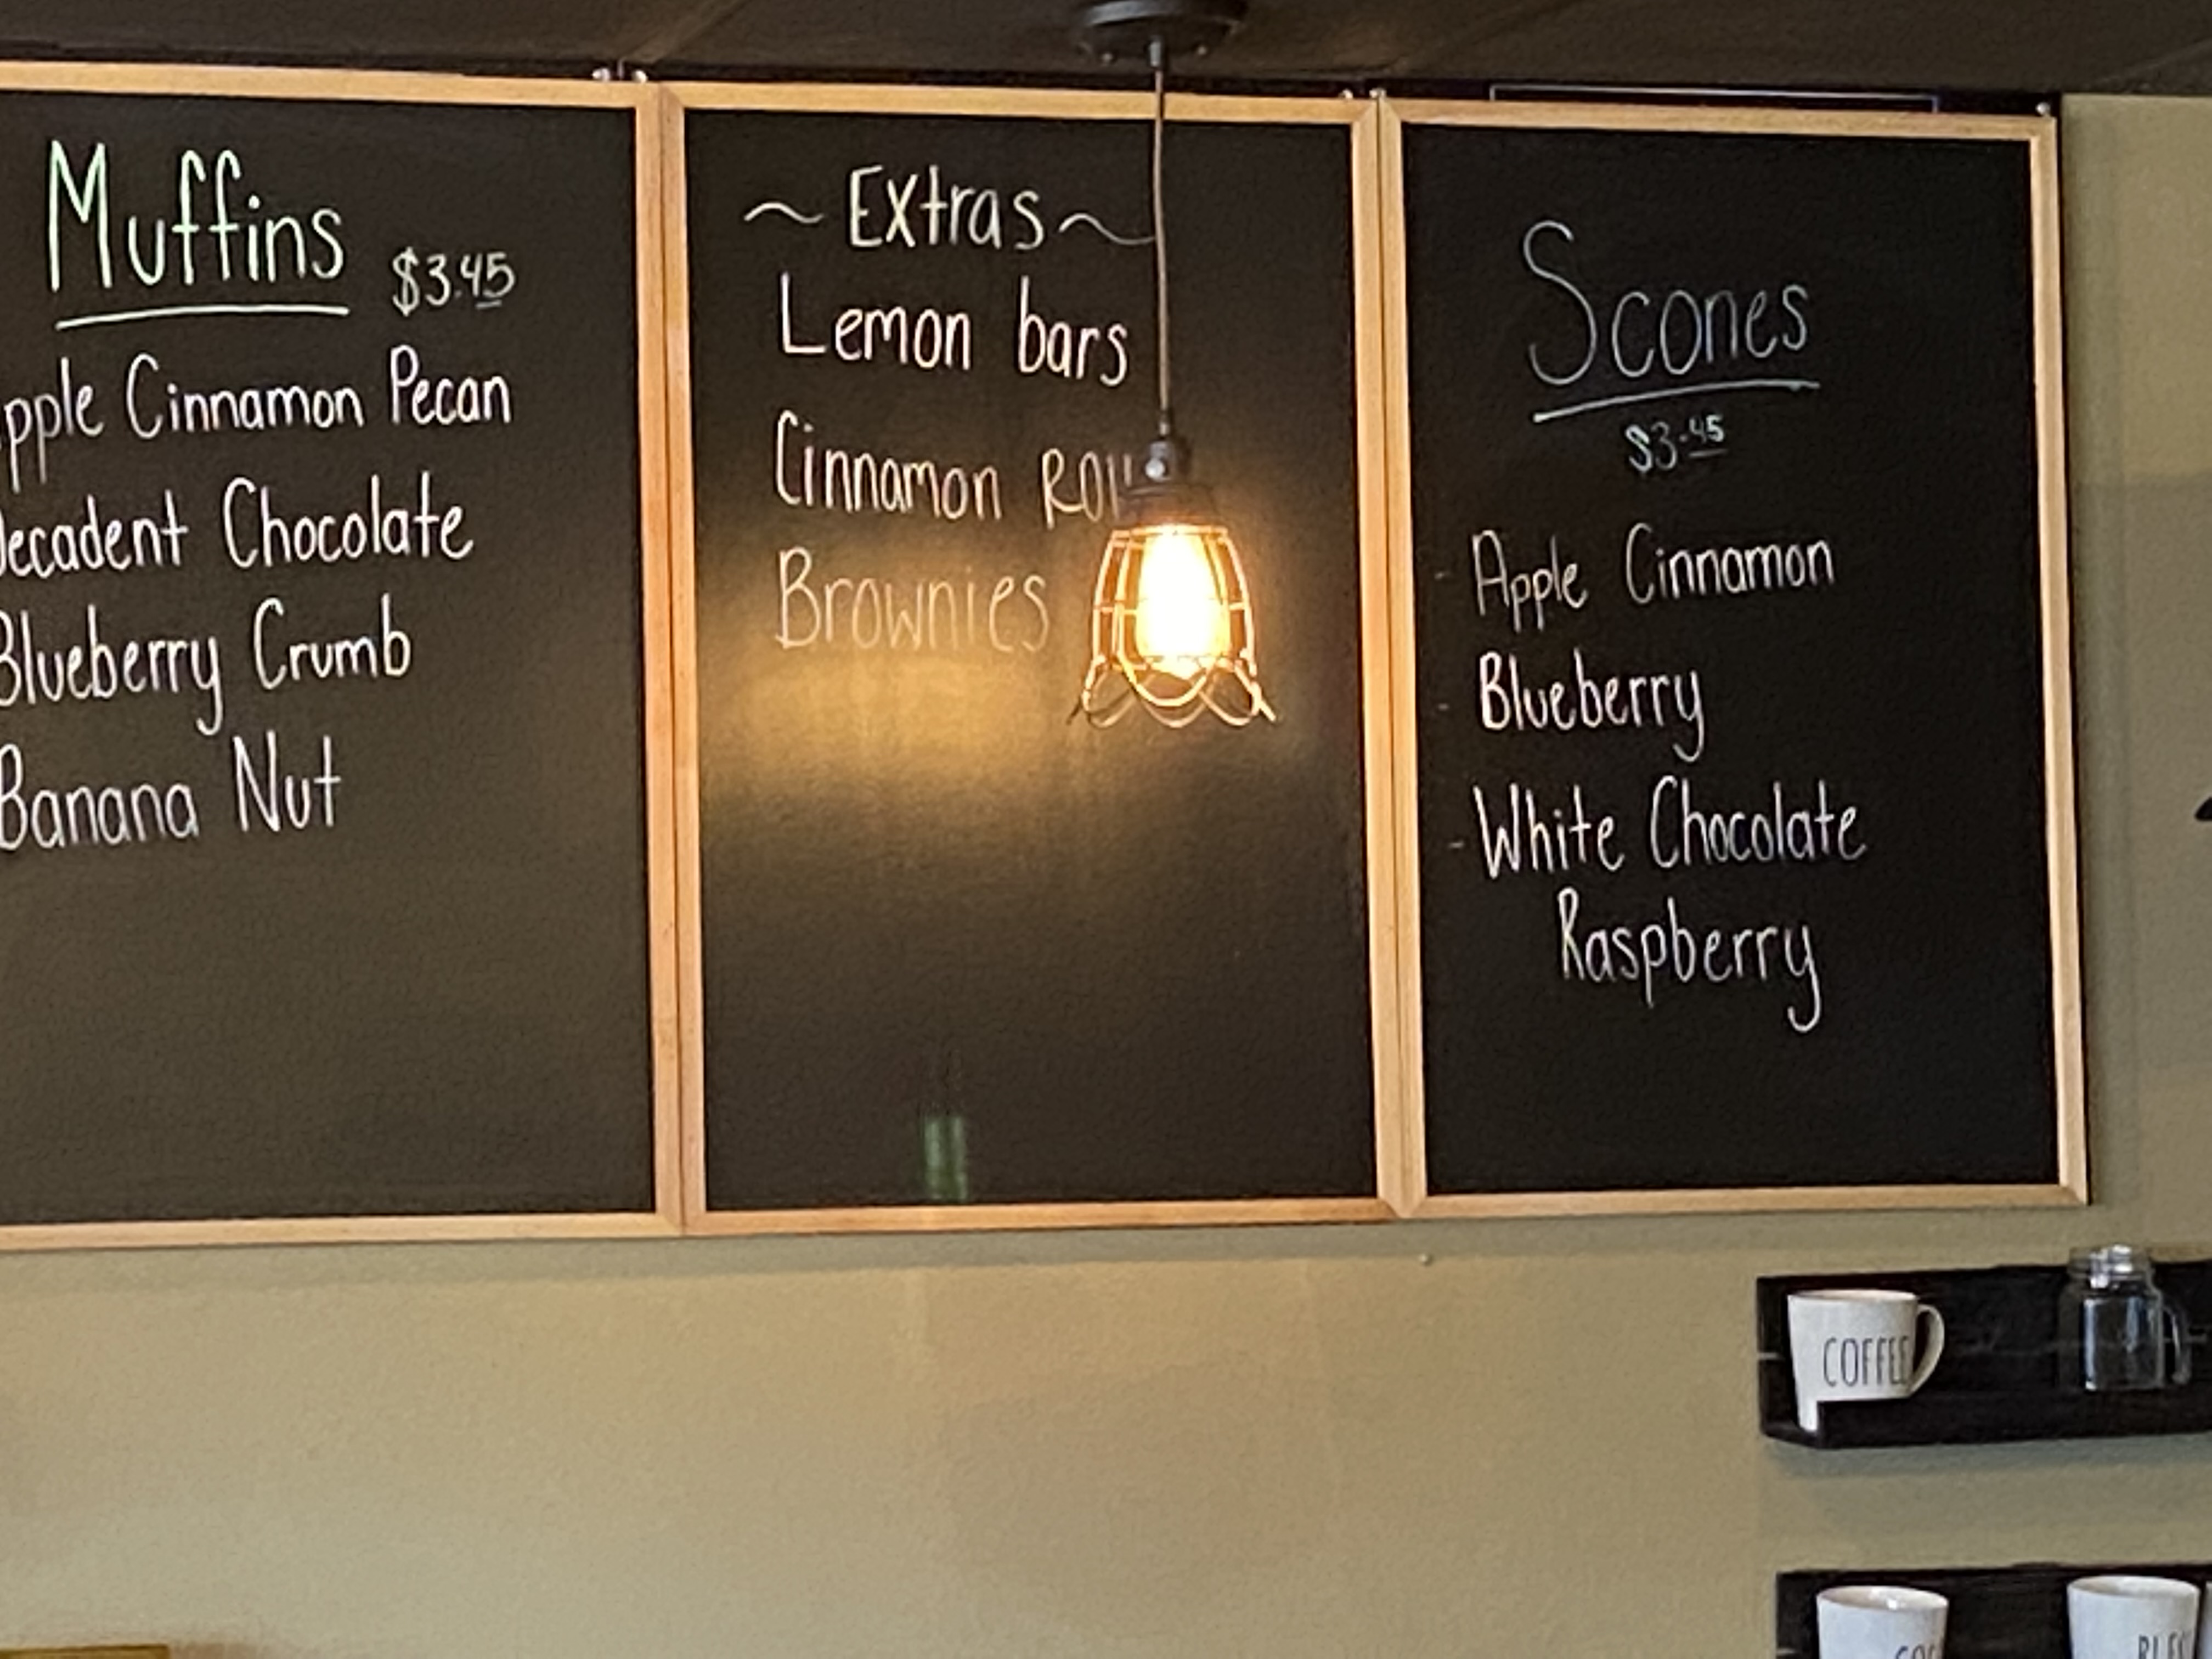 Muffins
$3.45
pple Cinnamon Pecan
ecadent Chocolate
Blueberry Crumb
Banana Nut
~Extras~
Lemon bars
Cinnamon
Brownies
Scones
$3.45
- Apple Cinnamon
- Blueberry
- White Chocolate
Raspberry
COFFEE